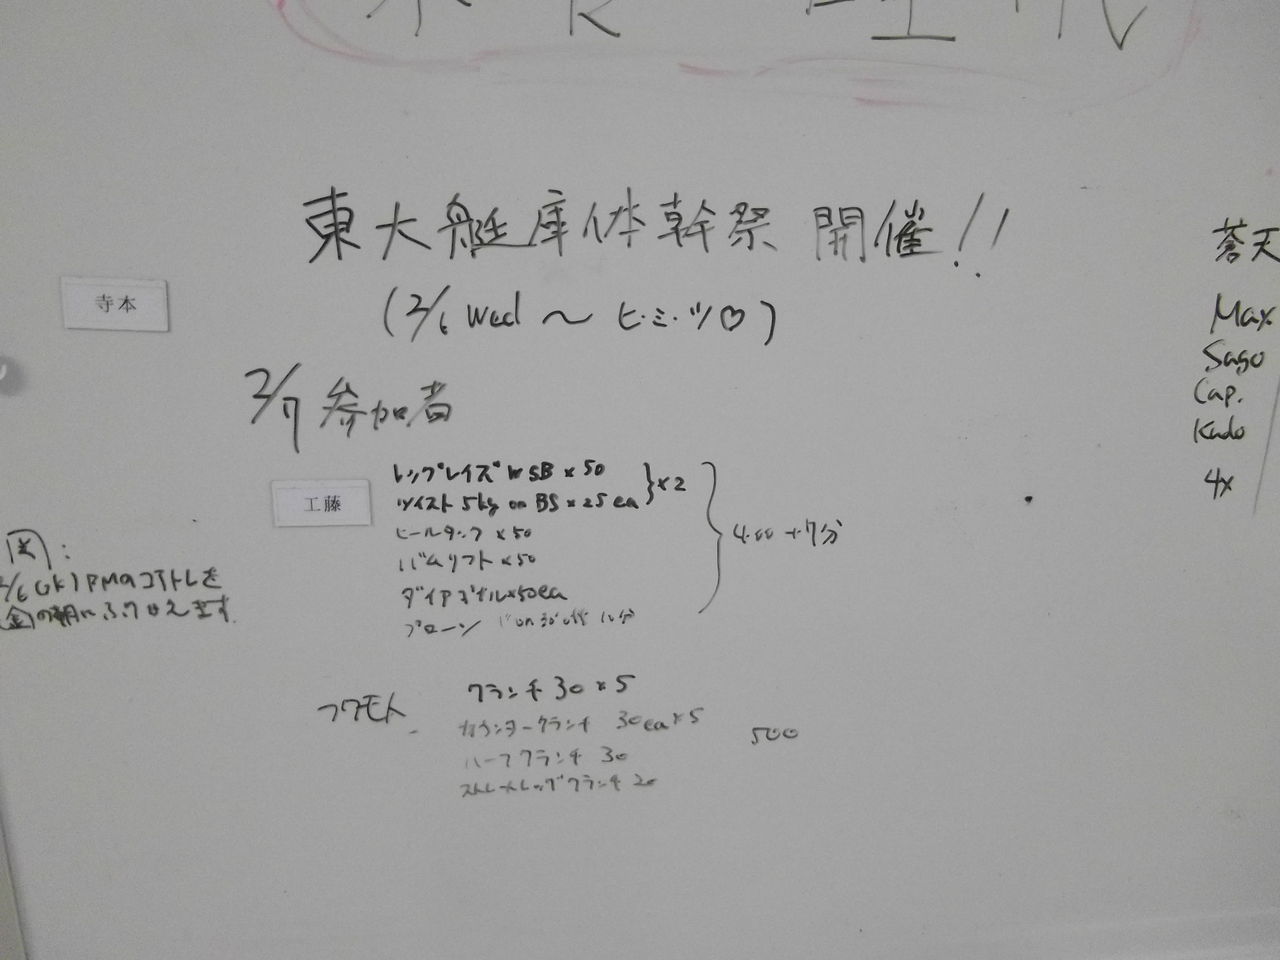 東大艇庫体幹祭 開催!!
(2/6 Wed 〜 ヒ・ミ・ツ♡)
寺本
2/7 参加者
工藤
レッグレイズ w SB × 50
ツイスト 5kg on BS × 25 ea
}×2
ヒールタッチ × 50
バムリフト × 50
ダイアゴナル×50ea
プローン 1' on 30" off 10分
400+7分
フクモト
クランチ 30 × 5
カウンタークランチ 30ea×5
ハーフクランチ 30
ストレートレッグクランチ 20
500
2/6(水)PMのコアトレを
金の朝にふりかえます
蒼天
Max
Sago
Cap.
Kudo
4x